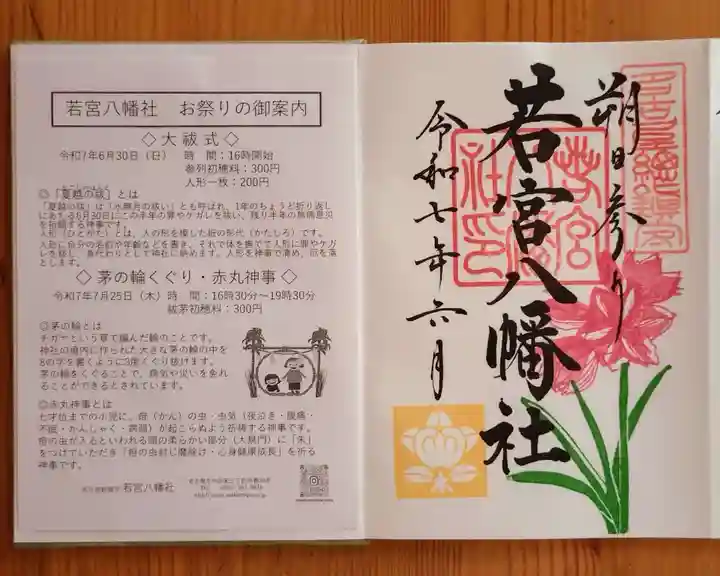 若宮八幡社 お祭りの御案内
◇大祓式◇
令和7年6月30日（日） 時 間：16時開始
参列初穂料：300円
人形一枚：200円
◎「夏越の祓」とは
「夏越の祓」は「水無月の祓い」とも呼ばれ、1年のちょうど折り返し
にあたる6月30日にこの半年の罪やケガレを祓い、残り半年の無病息災
を祈願する神事です。
人形（ひとがた）とは、人の形を模した紙の形代（かたしろ）です。
人形に自分の名前や年齢などを書き、それで体を撫でて人形に罪やケガ
レを移し、身代わりとして神社に納めます。人形を神事で清め、厄を落
とします。
◇茅の輪くぐり・赤丸神事◇
令和7年7月25日（木）時 間：16時30分～19時30分
祓茅初穂料：300円
◎茅の輪とは
チガヤという草で編んだ輪のことです。
神社の境内に作られた大きな茅の輪の中を
8の字を書くように3度くぐり抜けます。
茅の輪をくぐることで、病気や災いを免れ
ることができるとされています。
◎赤丸神事とは
七才位までの小児に、疳（かん）の虫・虫気（夜泣き・腹痛・
不眠・かんしゃく・病弱）が起こらぬよう祈祷する神事です。
疳の虫が入るといわれる頭の柔らかい部分（大泉門）に「朱」
をつけていただき「疳の虫封じ魔除け・心身健康成長」を祈る
神事です。
若宮八幡社
朔日参り
若宮八幡社
令和七年六月